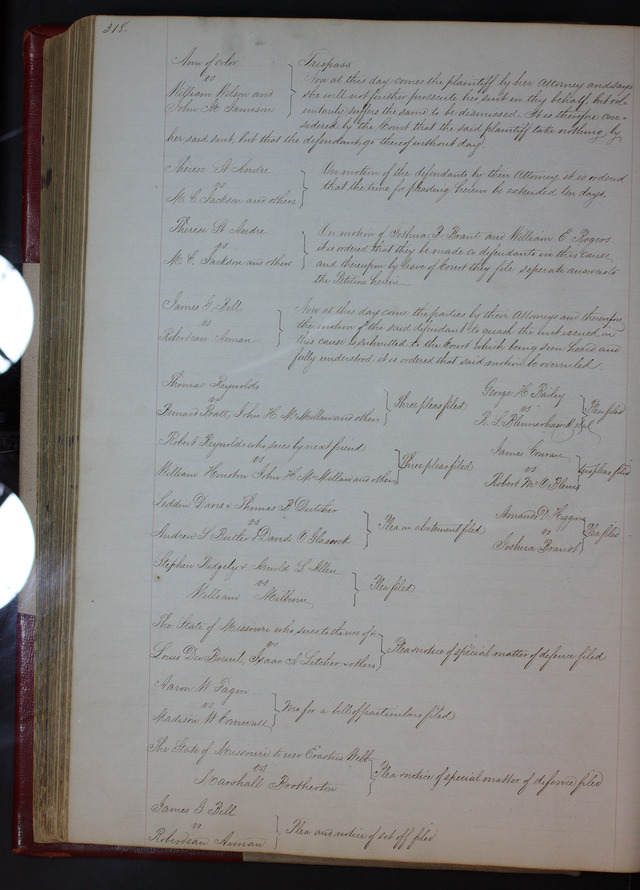 318.
Ann of color
vs
William Wilson and
John H. Jameson
Trespass
Now at this day comes the plaintiff by her Attorney and says
she will not further prosecute her suit in this behalf, but vol-
untarily suffers the same to be dismissed. It is therefore con-
sidered by the Court that the said plaintiff take nothing by
her said suit, but that the defendants go thereof without day.
Therese St Andre
vs
M. C. Jackson and others
On motion of the defendants by their Attorney it is ordered
that the time for pleading herein be extended ten days.
Therese St Andre
vs
M. C. Jackson and others
On motion of Joshua B. Brant and William E. Rogers
it is ordered that they be made co defendants in this cause,
and thereupon by leave of Court they file seperate answers to
the Petition herein
James G. Bell
vs
Roberdeau Annan
Now at this day come the parties by their Attorneys and therefore
the motion of the said defendant to quash the writ issued in
this cause is submitted to the Court which being seen heard and
fully understood it is ordered that said motion be overruled.
Thomas Reynolds
vs
Bernard Pratt, John H. McMillan and others
Three pleas filed
George H. Bailey
vs
Plea filed
Robert Reynolds who sues by next friend
vs
William Houston John H. McMillan and others
Three pleas filed
James Conran
vs
Robert M. O Blenis
pleas filed
Seddin Davis & Thomas F. Dutcher
vs
Andrew S. Luitter & David O Glascock
Plea in abatement filed
Amanda D.
vs
Joshua Brandt
Plea filed
Stephen Ridgely & Arnold L. Allen
vs
William Milburn
Plea filed
The State of Missouri who sues to the use of
vs
Louis Isaac A. Letcher & others
Plea & notice of special matter of defence filed
Aaron W. Fagin
vs
Madison W Cornwall
Mo for a bill of particulars filed
The State of Missouri to use Erastus Wells
vs
Marshall Brotherton
Plea & notice of special matter of defence filed
James G. Bell
vs
Roberdeau Annan
Plea and notice of set off filed